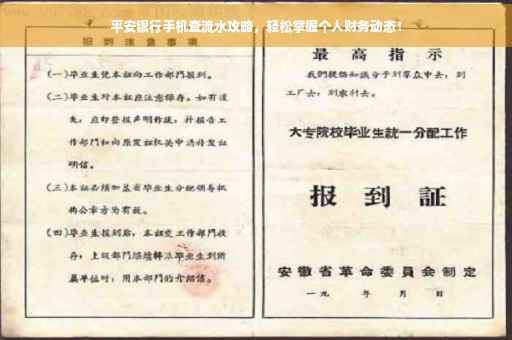 平安银行手机查流水攻略，轻松掌握个人财务动态！
报到注意事项
(一)毕业生凭本证向工作部门报到。
(二)毕业生对本证应注意保存。如有遗
失，应即登报声明作废，并报告工
作部门和向原发证机关申请补发证
明信。
(三)本证必须加盖省毕业生分配领导机
构公章方为有效。
(四)毕业生报到后，本证交工作部门收
存；上级部门继续转派毕业生到所
属单位时，用本部门的介绍信。
最高指示
我们提倡知识分子到群众中去，到
工厂去，到农村去。
大专院校毕业生统一分配工作
报到証
安徽省革命委員会制定
一九 年 月 日